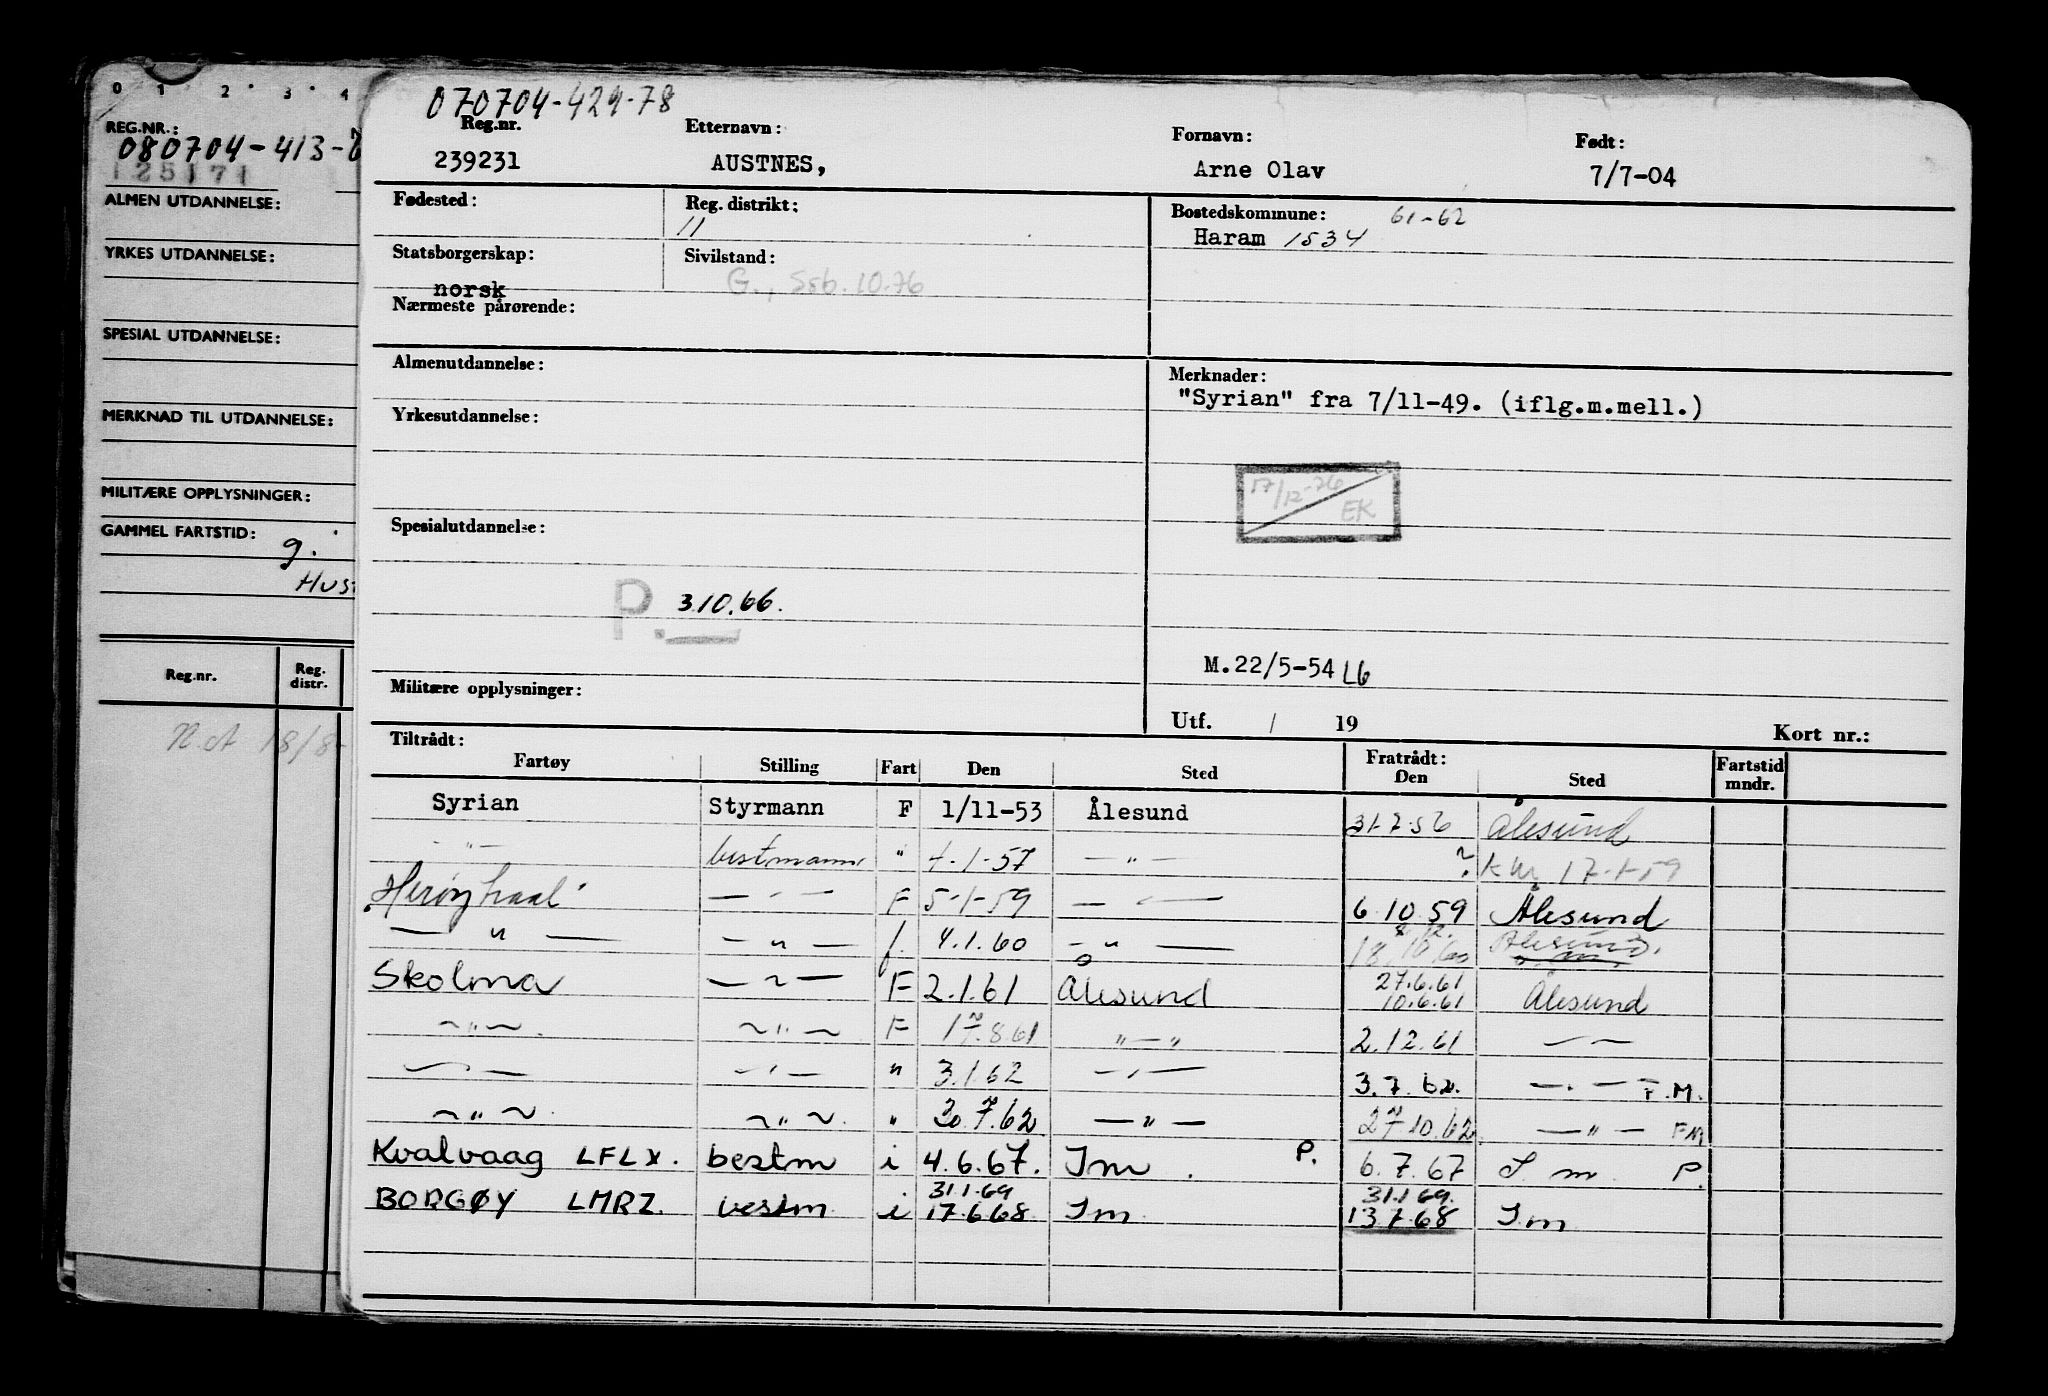 0 1 2 3 4
REG.NR.:
080704-413-
125171
ALMEN UTDANNELSE:
YRKES UTDANNELSE:
SPESIAL UTDANNELSE:
MERKNAD TIL UTDANNELSE:
MILITÆRE OPPLYSNINGER:
GAMMEL FARTSTID: g.
Reg.nr. Reg. distr.
18/8-
070704-429-78
Reg.nr. Etternavn: Fornavn: Født:
239231 AUSTNES, Arne Olav 7/7-04
Fødested: Reg. distrikt: 11 Bostedskommune: 61-62
Haram 1534
Statsborgerskap: norsk Sivilstand: G., Ssb. 10.76
Nærmeste pårørende:
Almenutdannelse: Merknader:
"Syrian" fra 7/11-49. (iflg.m.mell.)
Yrkesutdannelse:
17/12-76 EK
Spesialutdannelse:
P. 3.10.66.
M.22/5-54 LG
Militære opplysninger:
Utf. / 19 Kort nr.:
Tiltrådt: Fratrådt:
Fartøy Stilling Fart Den Sted Den Sted Fartstid mndr.
Syrian Styrmann F 1/11-53 Ålesund 31-7-56 Ålesund
-"- bestmann " 4-1-57 -"- ? 17-1-59
Herøyhaal - " - F 5-1-59 - " - 6.10.59 Ålesund
- " - - " - f. 4.1.60 - " - Ålesund.
Skolma - " - F 2.1.61 Ålesund 27.6.61
10.6.61 Ålesund
- " - - " - F 17.8.61 " - " 2.12.61 - " -
- " - - " - " 3.1.62 - " - 3.7.62. - " - F.M.
- " - - " - " 30.7.62 - " - 27.10.62 - " - FM
Kvalvaag LFLX. bestm i 4.6.67. Im. P. 6.7.67 I m P.
31.1.69 31.1.69.
BORGØY LMRZ. bestm i 17.6.68 Im 13.7.68 I.m